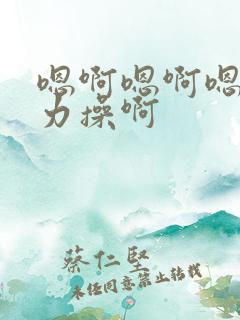 嗯啊嗯啊嗯
力操啊
蔡仁坚
未经同意禁止转载